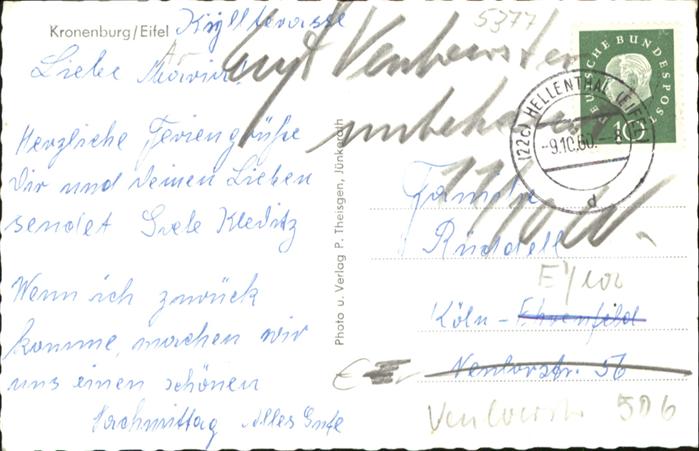 5377
Kronenburg/Eifel Kyllterrasse
Liebe Maria!
Herzliche Feriengrüße
Dir und deinen Lieben
sendet Kleditz
Wenn ich zurück
komme, machen wir
uns einen schönen
Nachmittag Alles Gute
Photo u. Verlag P. Theisgen, Jünkerath
DEUTSCHE BUNDESPOST
10
(22c) HELLENTHAL (EIFEL)
-9.10.60.-8
d
auf Venloerstr
unbekannt
11/10
Familie
Rüddell
Köln-Ehrenfeld
Venloerstr. 56
Venloerstr 506